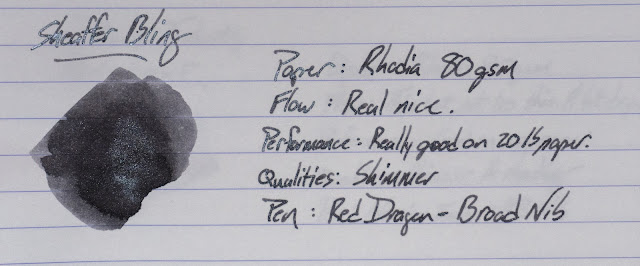 Sheaffer Bling
Paper: Rhodia 80gsm
Flow: Real nice.
Performance: Really good on 20 lb paper.
Qualities: Shimmer
Pen: Red Dragon - Broad Nib